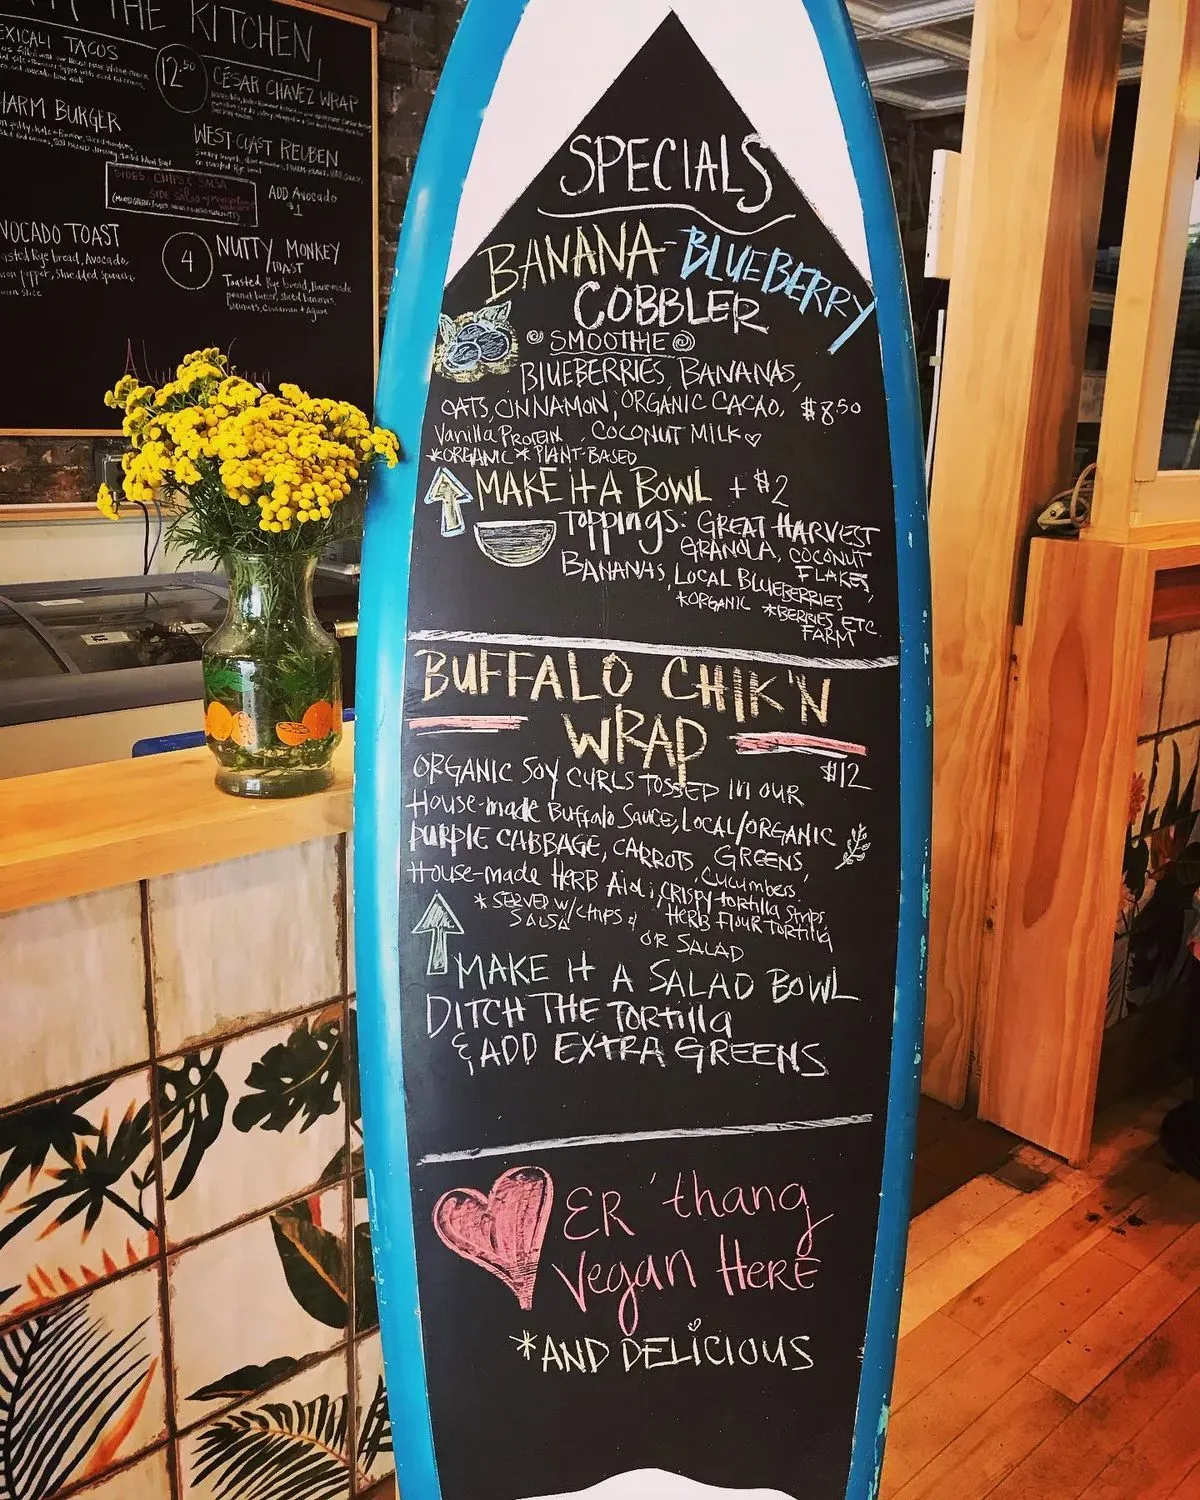 THE KITCHEN
MEXICALI TACOS
12.50
CÉSAR CHÁVEZ WRAP
HARM BURGER
WEST-COAST REUBEN
SIDES: CHIPS & SALSA
ADD Avocado
$1
AVOCADO TOAST
Rye bread, Avocado,
pepper, Shredded
slice
4
NUTTY MONKEY
TOAST
Toasted Rye bread, House-made
peanut butter, sliced bananas,
Coconuts, Cinnamon + Agave
SPECIALS
BANANA-BLUEBERRY
COBBLER
SMOOTHIE
BLUEBERRIES, BANANAS,
OATS, CINNAMON, ORGANIC CACAO, $8.50
Vanilla Protein, COCONUT MILK ♡
*ORGANIC * PLANT-BASED
MAKE it A BOWL + $2
TOPPINGS: GREAT HARVEST
GRANOLA, COCONUT
FLAKES,
BANANAS, LOCAL BLUEBERRIES
*ORGANIC *BERRIES, ETC
FARM
BUFFALO CHIK'N
WRAP
$12
ORGANIC SOY CURLS TOSSED in OUR
House-made Buffalo Sauce, LOCAL/ORGANIC
PURPLE CABBAGE, CARROTS, GREENS,
Cucumbers,
House-made HERB Aioli, CRISPY tortilla Strips
* SERVED W/CHIPS & HERB FLOUR TORTILLA
SALSA
OR SALAD
MAKE it A SALAD BOWL
DITCH THE TORtilla
& ADD EXTRA GREENS
ER 'thang
Vegan HERE
*AND DELICIOUS